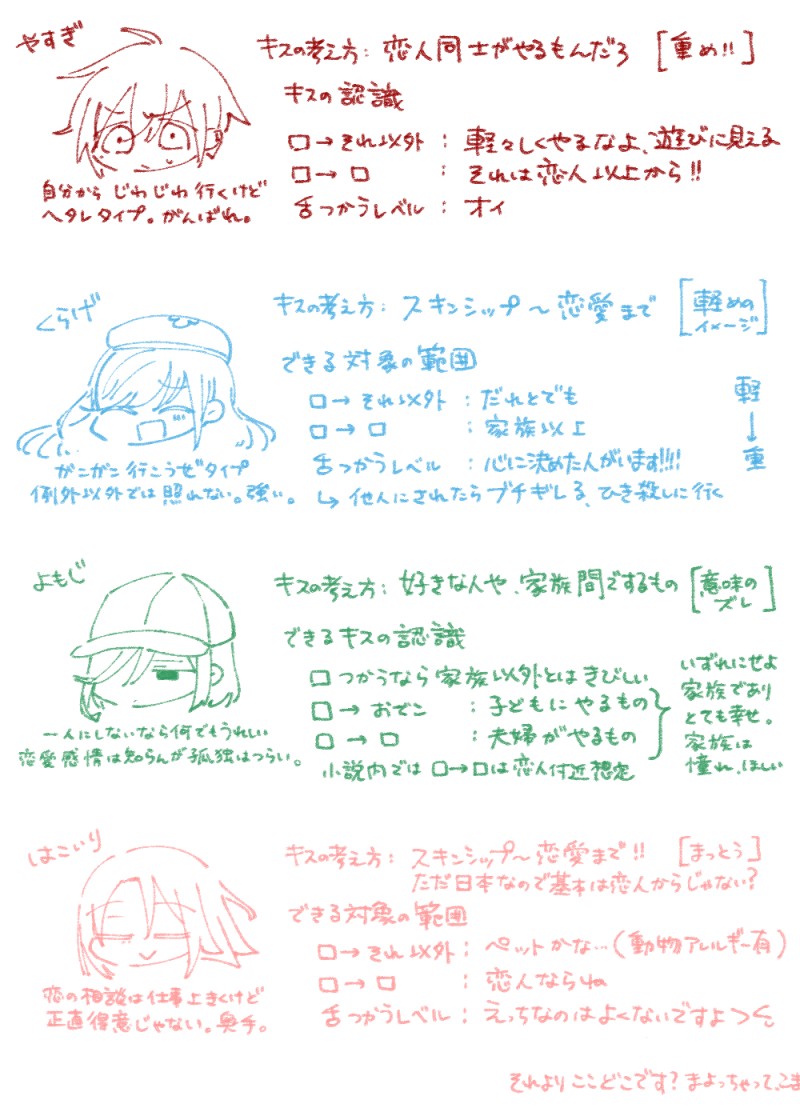 やすぎ
キスの考え方: 恋人同士がやるもんだろ [重め!!]
キスの認識
口→それ以外 : 軽々しくやるなよ、遊びに見える
口→口 : それは恋人以上から!!
舌つかうレベル : オイ
自分から じわじわ 行くけど
ヘタレタイプ。がんばれ。
くらげ
キスの考え方: スキンシップ〜恋愛まで [軽めのイメージ]
できる対象の範囲
口→それ以外 : だれとでも
口→口 : 家族以上
舌つかうレベル : 心に決めた人がいます!!!!
↳他人にされたらブチギレる、ひき殺しに行く
軽
↓
重
がこがこ行こうぜタイプ
例外以外では照れない。強い。
よもじ
キスの考え方: 好きな人や、家族間でするもの [意味のズレ]
できるキスの認識
口つかうなら家族以外とはきびしい
口→おでこ : 子どもにやるもの
口→口 : 夫婦がやるもの
小説内では口→口は恋人付近想定
いずれにせよ
家族であり
とても幸せ。
家族は
憧れ、ほしい
一人にしないなら何でもうれしい
恋愛感情は知らんが孤独はつらい。
はこいり
キスの考え方: スキンシップ〜恋愛まで!! [まっとう]
ただ日本なので基本は恋人からじゃない?
できる対象の範囲
口→それ以外: ペットかな…(動物アレルギー有)
口→口 : 恋人ならね
舌つかうレベル : えっちなのはよくないですよ
恋の相談は仕事上きくけど
正直得意じゃない。奥手。
それよりここどこです?まよっちゃって、こま